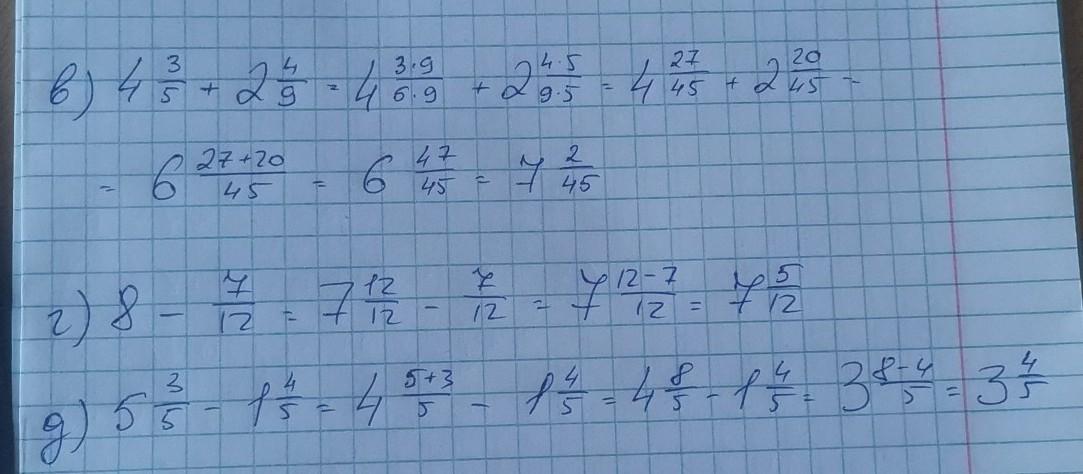 в) 4 3/5 + 2 4/9 = 4 3·9/5·9 + 2 4·5/9·5 = 4 27/45 + 2 20/45 =
= 6 27+20/45 = 6 47/45 = 7 2/45
г) 8 - 7/12 = 7 12/12 - 7/12 = 7 12-7/12 = 7 5/12
д) 5 3/5 - 1 4/5 = 4 5+3/5 - 1 4/5 = 4 8/5 - 1 4/5 = 3 8-4/5 = 3 4/5